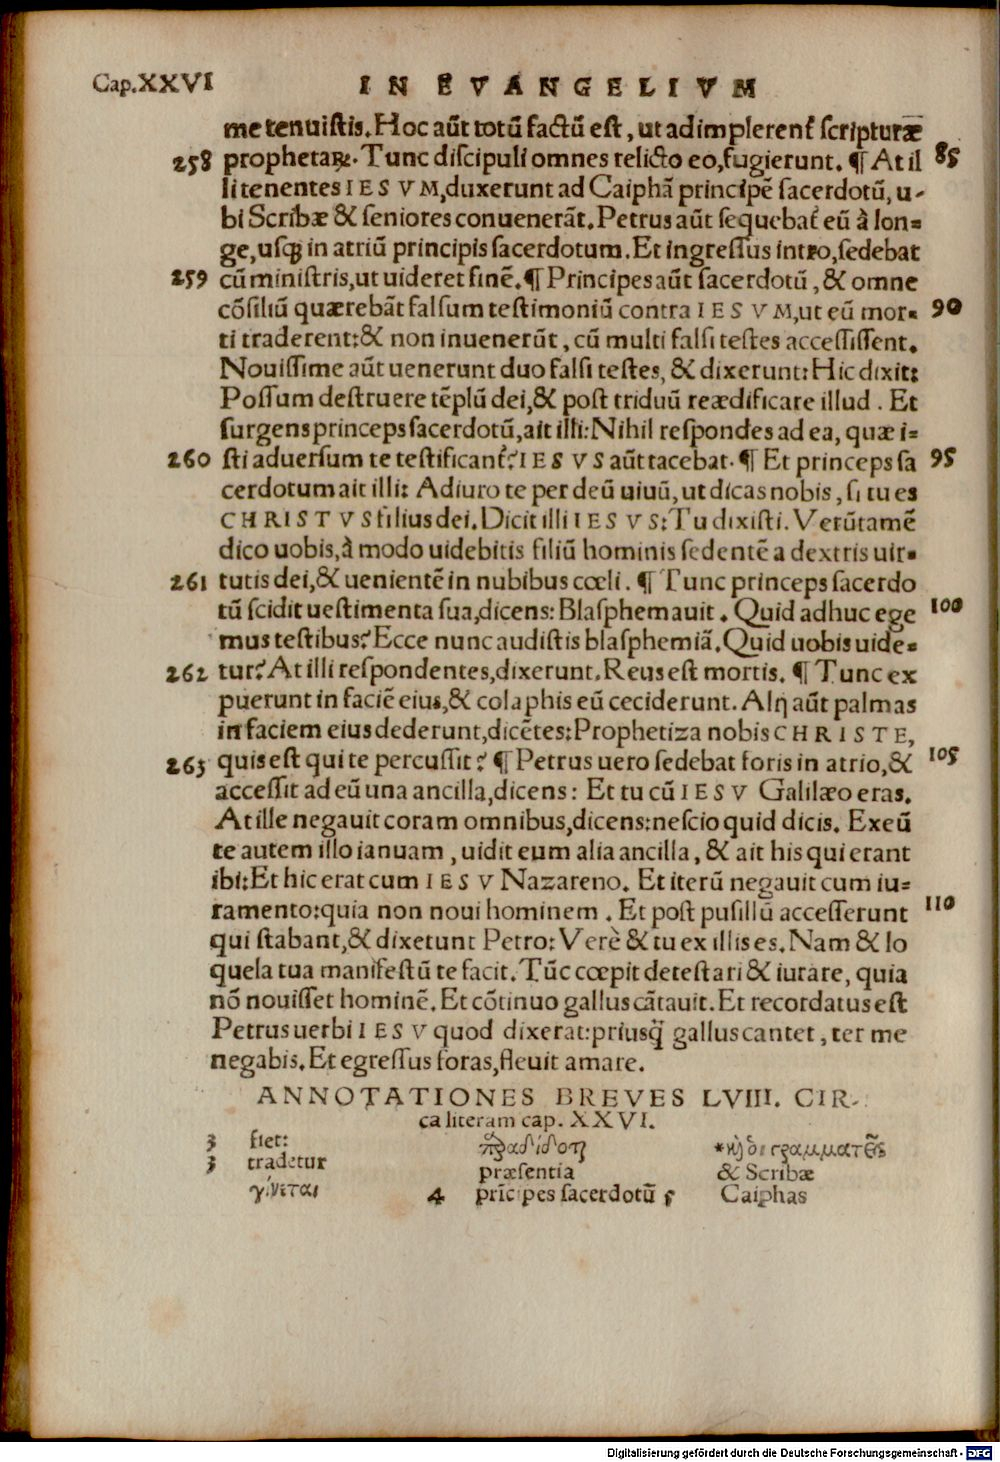 Cap.XXVI IN EVANGELIVM
me tenuistis. Hoc aũt totũ factũ est, ut adimplerent᷑ scripturæ
258 prophetaꝝ. Tunc discipuli omnes relicto eo, fugierunt. ¶ At il 85
li tenentes IESVM, duxerunt ad Caiphã principẽ sacerdotũ, u-
bi Scribæ & seniores conuenerãt. Petrus aũt sequebat᷑ eũ à lon=
ge, usq; in atriũ principis sacerdotum. Et ingressus intro, sedebat
259 cũ ministris, ut uideret finẽ. ¶ Principes aũt sacerdotũ, & omne
cõsiliũ quærebãt falsum testimoniũ contra IESVM, ut eũ mor= 90
ti traderent: & non inuenerũt, cũ multi falsi testes accessissent.
Nouissime aũt uenerunt duo falsi testes, & dixerunt: Hic dixit:
Possum destruere tẽplũ dei, & post triduũ reædificare illud. Et
surgens princeps sacerdotũ, ait illi: Nihil respondes ad ea, quæ i=
260 sti aduersum te testificant᷑? IESVS aũt tacebat. ¶ Et princeps sa 95
cerdotum ait illi: Adiuro te per deũ uiuũ, ut dicas nobis, si tu es
CHRISTVS filius dei. Dicit illi IESVS: Tu dixisti. Verũtamẽ
dico uobis, à modo uidebitis filiũ hominis sedentẽ a dextris uir=
261 tutis dei, & uenientẽ in nubibus cœli. ¶ Tunc princeps sacerdo
tũ scidit uestimenta sua, dicens: Blasphemauit. Quid adhuc ege 100
mus testibus? Ecce nunc audistis blasphemiã. Quid uobis uide=
262 tur? At illi respondentes, dixerunt. Reus est mortis. ¶ Tunc ex
puerunt in faciẽ eius, & colaphis eũ ceciderunt. Alij aũt palmas
in faciem eius dederunt, dicẽtes: Prophetiza nobis CHRISTE,
263 quis est qui te percussit? ¶ Petrus uero sedebat foris in atrio, & 105
accessit ad eũ una ancilla, dicens: Et tu cũ IESV Galilæo eras.
At ille negauit coram omnibus, dicens: nescio quid dicis. Exeũ
te autem illo ianuam, uidit eum alia ancilla, & ait his qui erant
ibi: Et hic erat cum IESV Nazareno. Et iterũ negauit cum iu=
ramento: quia non noui hominem. Et post pusillũ accesserunt 110
qui stabant, & dixerunt Petro: Verè & tu ex illis es. Nam & lo
quela tua manifestũ te facit. Tũc cœpit detestari & iurare, quia
nõ nouisset hominẽ. Et cõtinuo gallus cãtauit. Et recordatus est
Petrus uerbi IESV quod dixerat: priusq̃ gallus cantet, ter me
negabis. Et egressus foras, fleuit amare.
ANNOTATIONES BREVES LVIII. CIR-
ca literam cap. XXVI.
3 fiet: παραδίδοτη *καὶ οἱ γραμματεῖς
3 tradetur præsentia & Scribæ
γίνεται 4 prĩcipes sacerdotũ 5 Caiphas
Digitalisierung gefördert durch die Deutsche Forschungsgemeinschaft - DFG